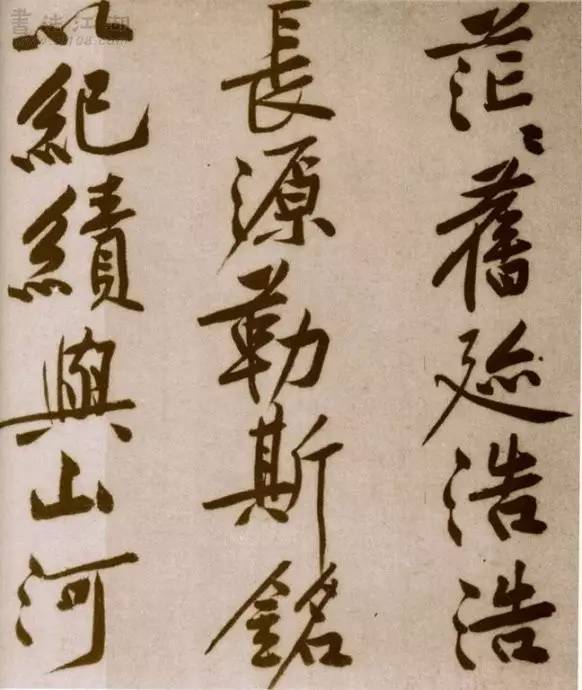 茫〻舊迹浩浩
長源勒斯銘
以紀績與山河
書法江湖